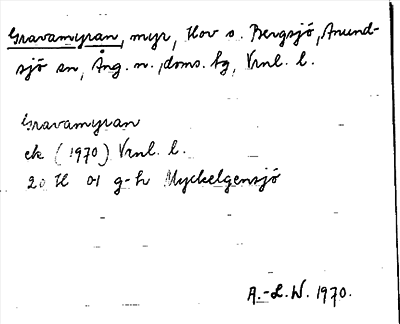 Gravamyran, myr, Hov s. Bergsjö, Anund-
sjö sn, Ång. n., doms. fg, Vrnl. l.
Gravamyran
ek (1970) Vrnl. l.
20 H 0-1 g-h Myckelgensjö
A.-L. W. 1970.